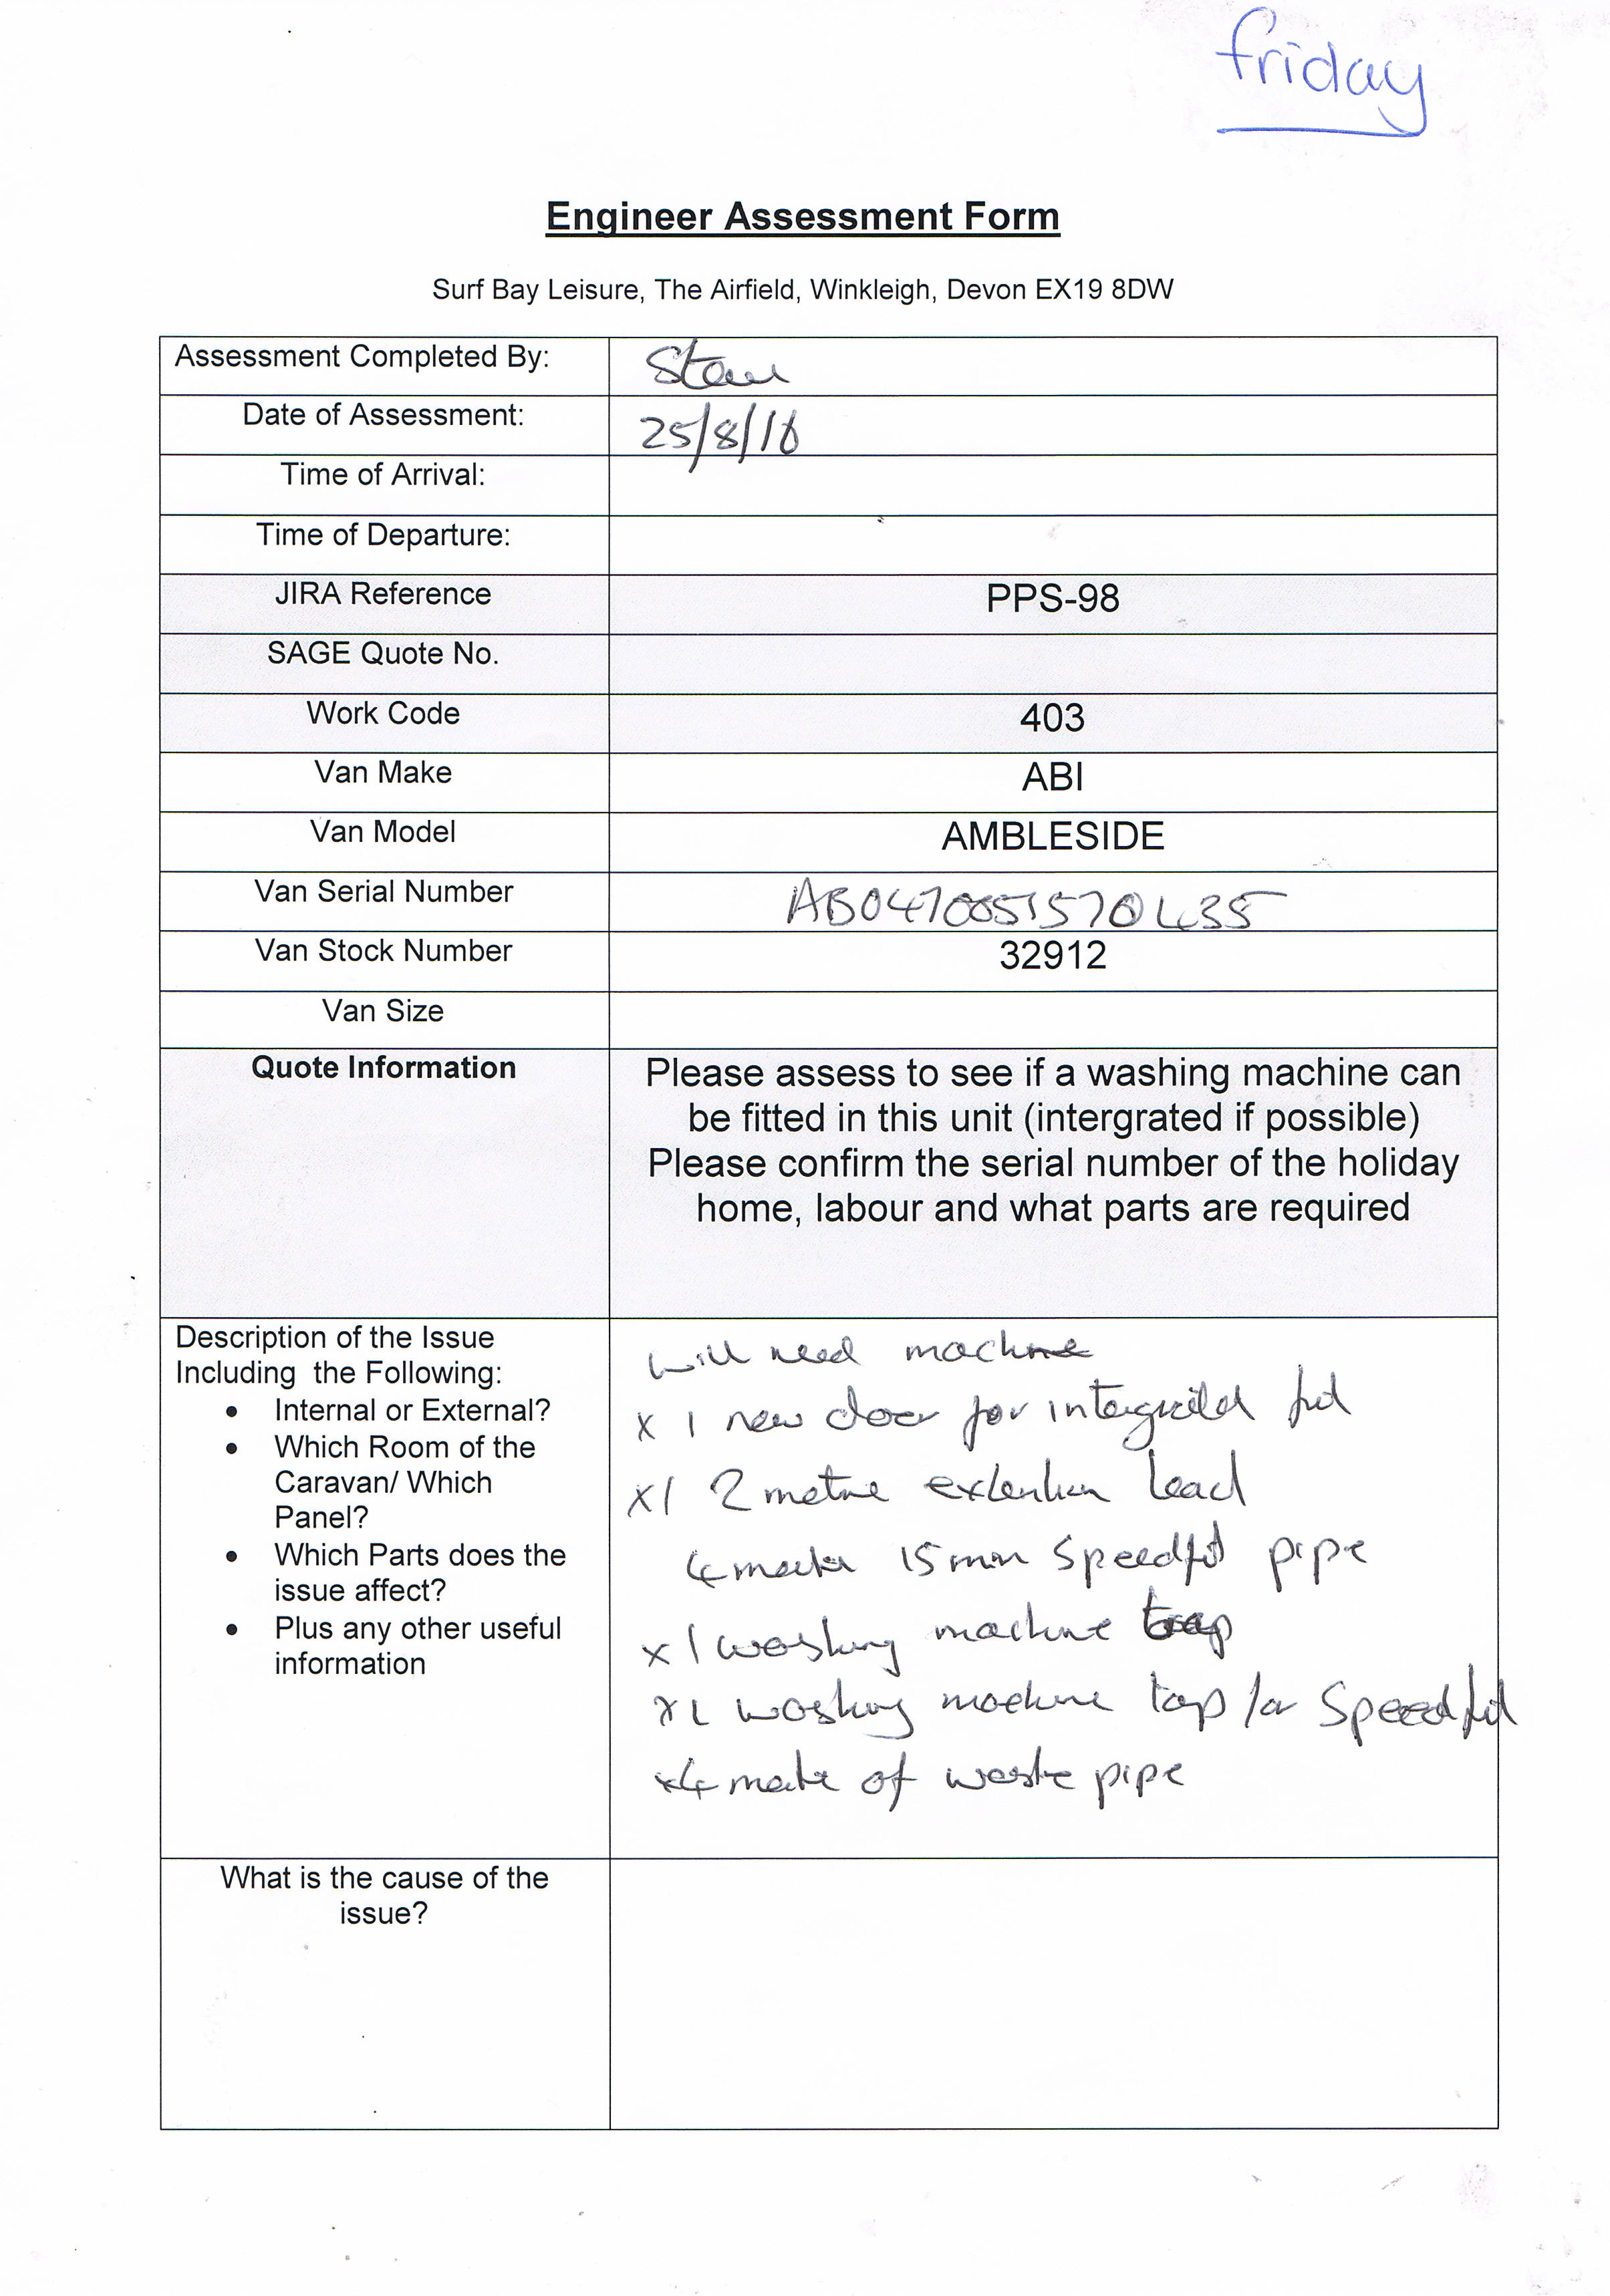 friday
Engineer Assessment Form
Surf Bay Leisure, The Airfield, Winkleigh, Devon EX19 8DW
Assessment Completed By:
Date of Assessment: 25/8/16
Time of Arrival:
Time of Departure:
JIRA Reference PPS-98
SAGE Quote No.
Work Code 403
Van Make ABI
Van Model AMBLESIDE
Van Serial Number
Van Stock Number 32912
Van Size
Quote Information Please assess to see if a washing machine can
be fitted in this unit (intergrated if possible)
Please confirm the serial number of the holiday
home, labour and what parts are required
Description of the Issue
Including the Following:
• Internal or External?
• Which Room of the
Caravan/ Which
Panel?
• Which Parts does the
issue affect?
• Plus any other useful
information
will need machine
x 1 new door for
x1 2 metre extention lead
4 15mm Speedfit pipe
x 1 washing machine trap
x1 washing machine tap for Speedfit
x4 of waste pipe
What is the cause of the
issue?